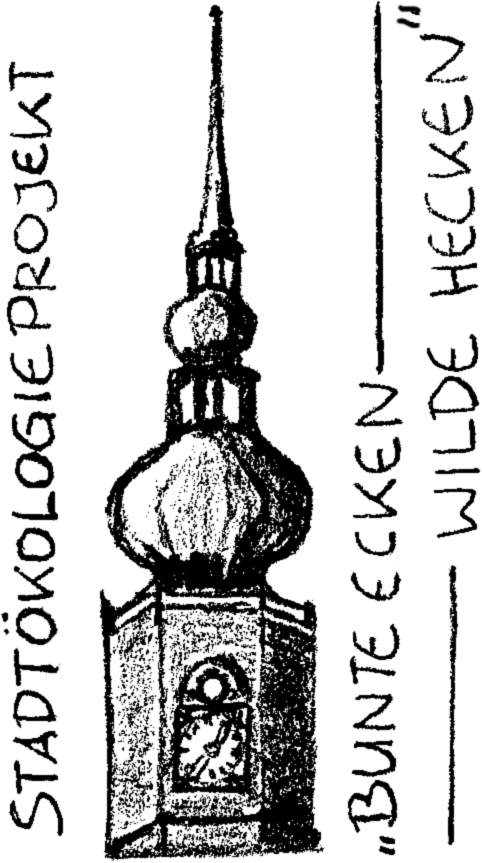 STADTÖKOLOGIEPROJEKT
„BUNTE ECKEN
WILDE HECKEN“